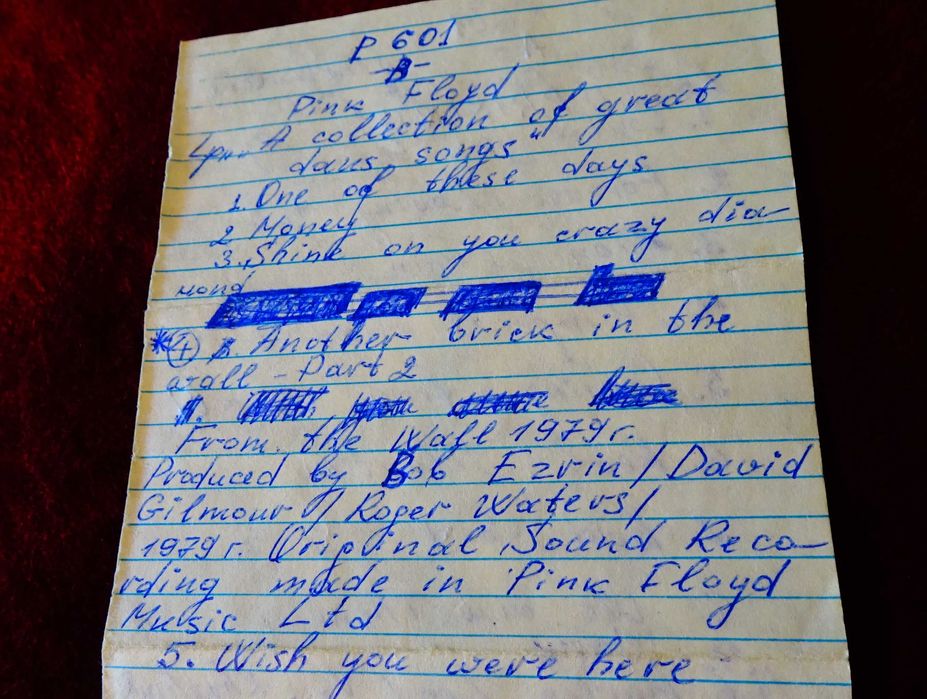 P 601
B
Pink Floyd
A collection of great
dans songs"
1. One of these days
2 Money
3. Shine on you crazy dia-
mond
* 4 Another brick in the
wall - Part 2
From the Wall 1979 г.
Produced by Bob Ezrin / David
Gilmour / Roger Waters /
1979 г. Original Sound Reco-
rding made in Pink Floyd
Music Ltd
5. Wish you were here